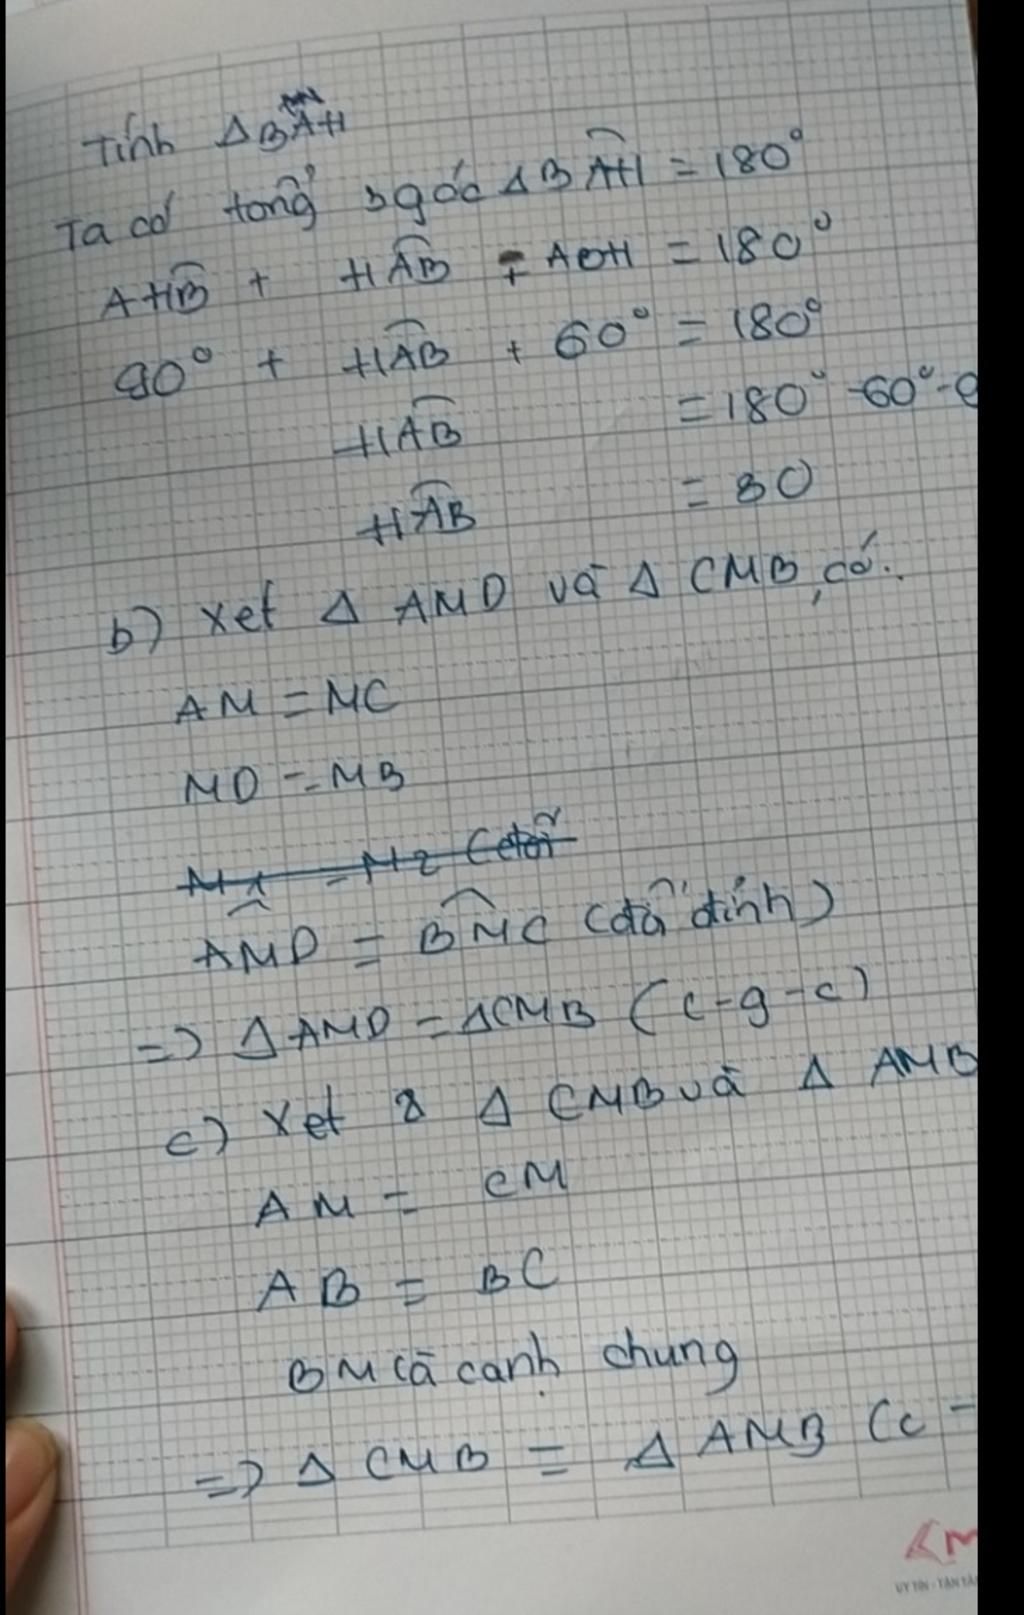 Tính ΔBAH
Ta có tổng 3 góc ΔBAH = 180°
AHB + HAB + ABH = 180°
90° + HAB + 60° = 180°
HAB = 180° - 60° -
HAB = 30
b) Xet Δ AMD và Δ CMB, có:
AM = MC
MD = MB
M1 = M2 (đối
AMD = BMC (đối đỉnh)
=> Δ AMD = ΔCMB (c-g-c)
c) Xet 2 Δ CMB và Δ AMB
AM = CM
AB = BC
BM là cạnh chung
=> Δ CMB = Δ AMB (c -
UY TÍN - TẬN TÂ